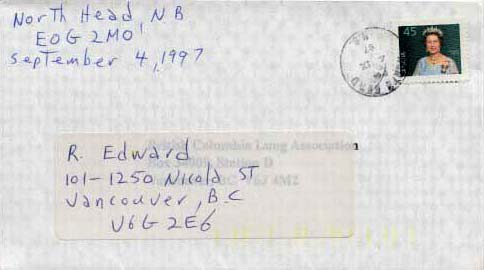 North Head, NB
E0G 2M0
September 4, 1997
45
British Columbia Lung Association
Station D
4M2
R. Edward
101-1250 Nicola ST
Vancouver, B.C
V6G 2E6